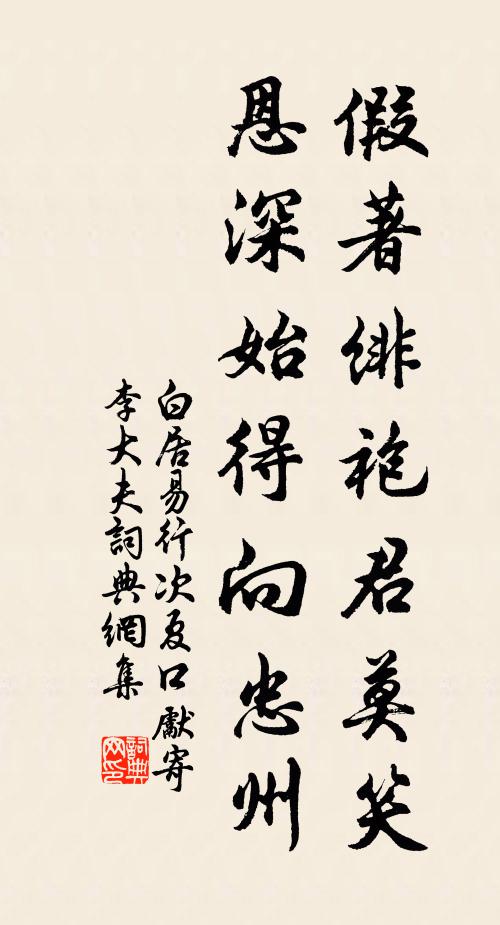 假著緋袍君莫笑
恩深始得向忠州
白居易行次夏口獻寄
李大夫詞典網集
詞典
网印